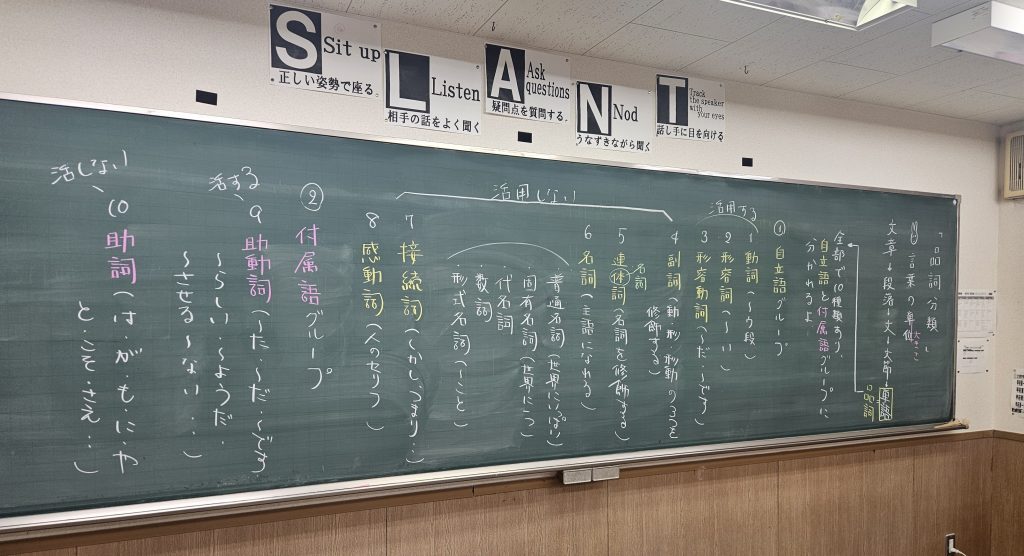 S Sit up
正しい姿勢で座る
L Listen
相手の話をよく聞く
A Ask questions
疑問点を質問する
N Nod
うなずきながら聞く
T Track the speaker with Your eyes
話し手に目を向ける
品詞分類
言葉の単位
大きさ
文章→段落→文→文節→単語
品詞
全部で10種類あり、
自立語と付属語グループに
分かれるよ
① 自立語グループ
活用する
1 動詞(〜う段)
2 形容詞(〜い)
3 形容動詞(〜だ・〜です)
活用しない
4 副詞(動・形・形動の3つを
修飾する)
名詞
5 連体詞(名詞を修飾する)
6 名詞(主語になれる)
・普通名詞(世界にいっぱい)
・固有名詞(世界に一つ)
・代名詞
・数詞
・形式名詞(〜こと)
7 接続詞(しかし、つまり…)
8 感動詞(人のセリフ)
② 付属語グループ
活する
9 助動詞(〜た・〜だ・〜です
〜らしい・〜ようだ・
〜させる・〜ない…)
活しない
10 助詞(は・が・も・に・や
と・こそ・さえ…)